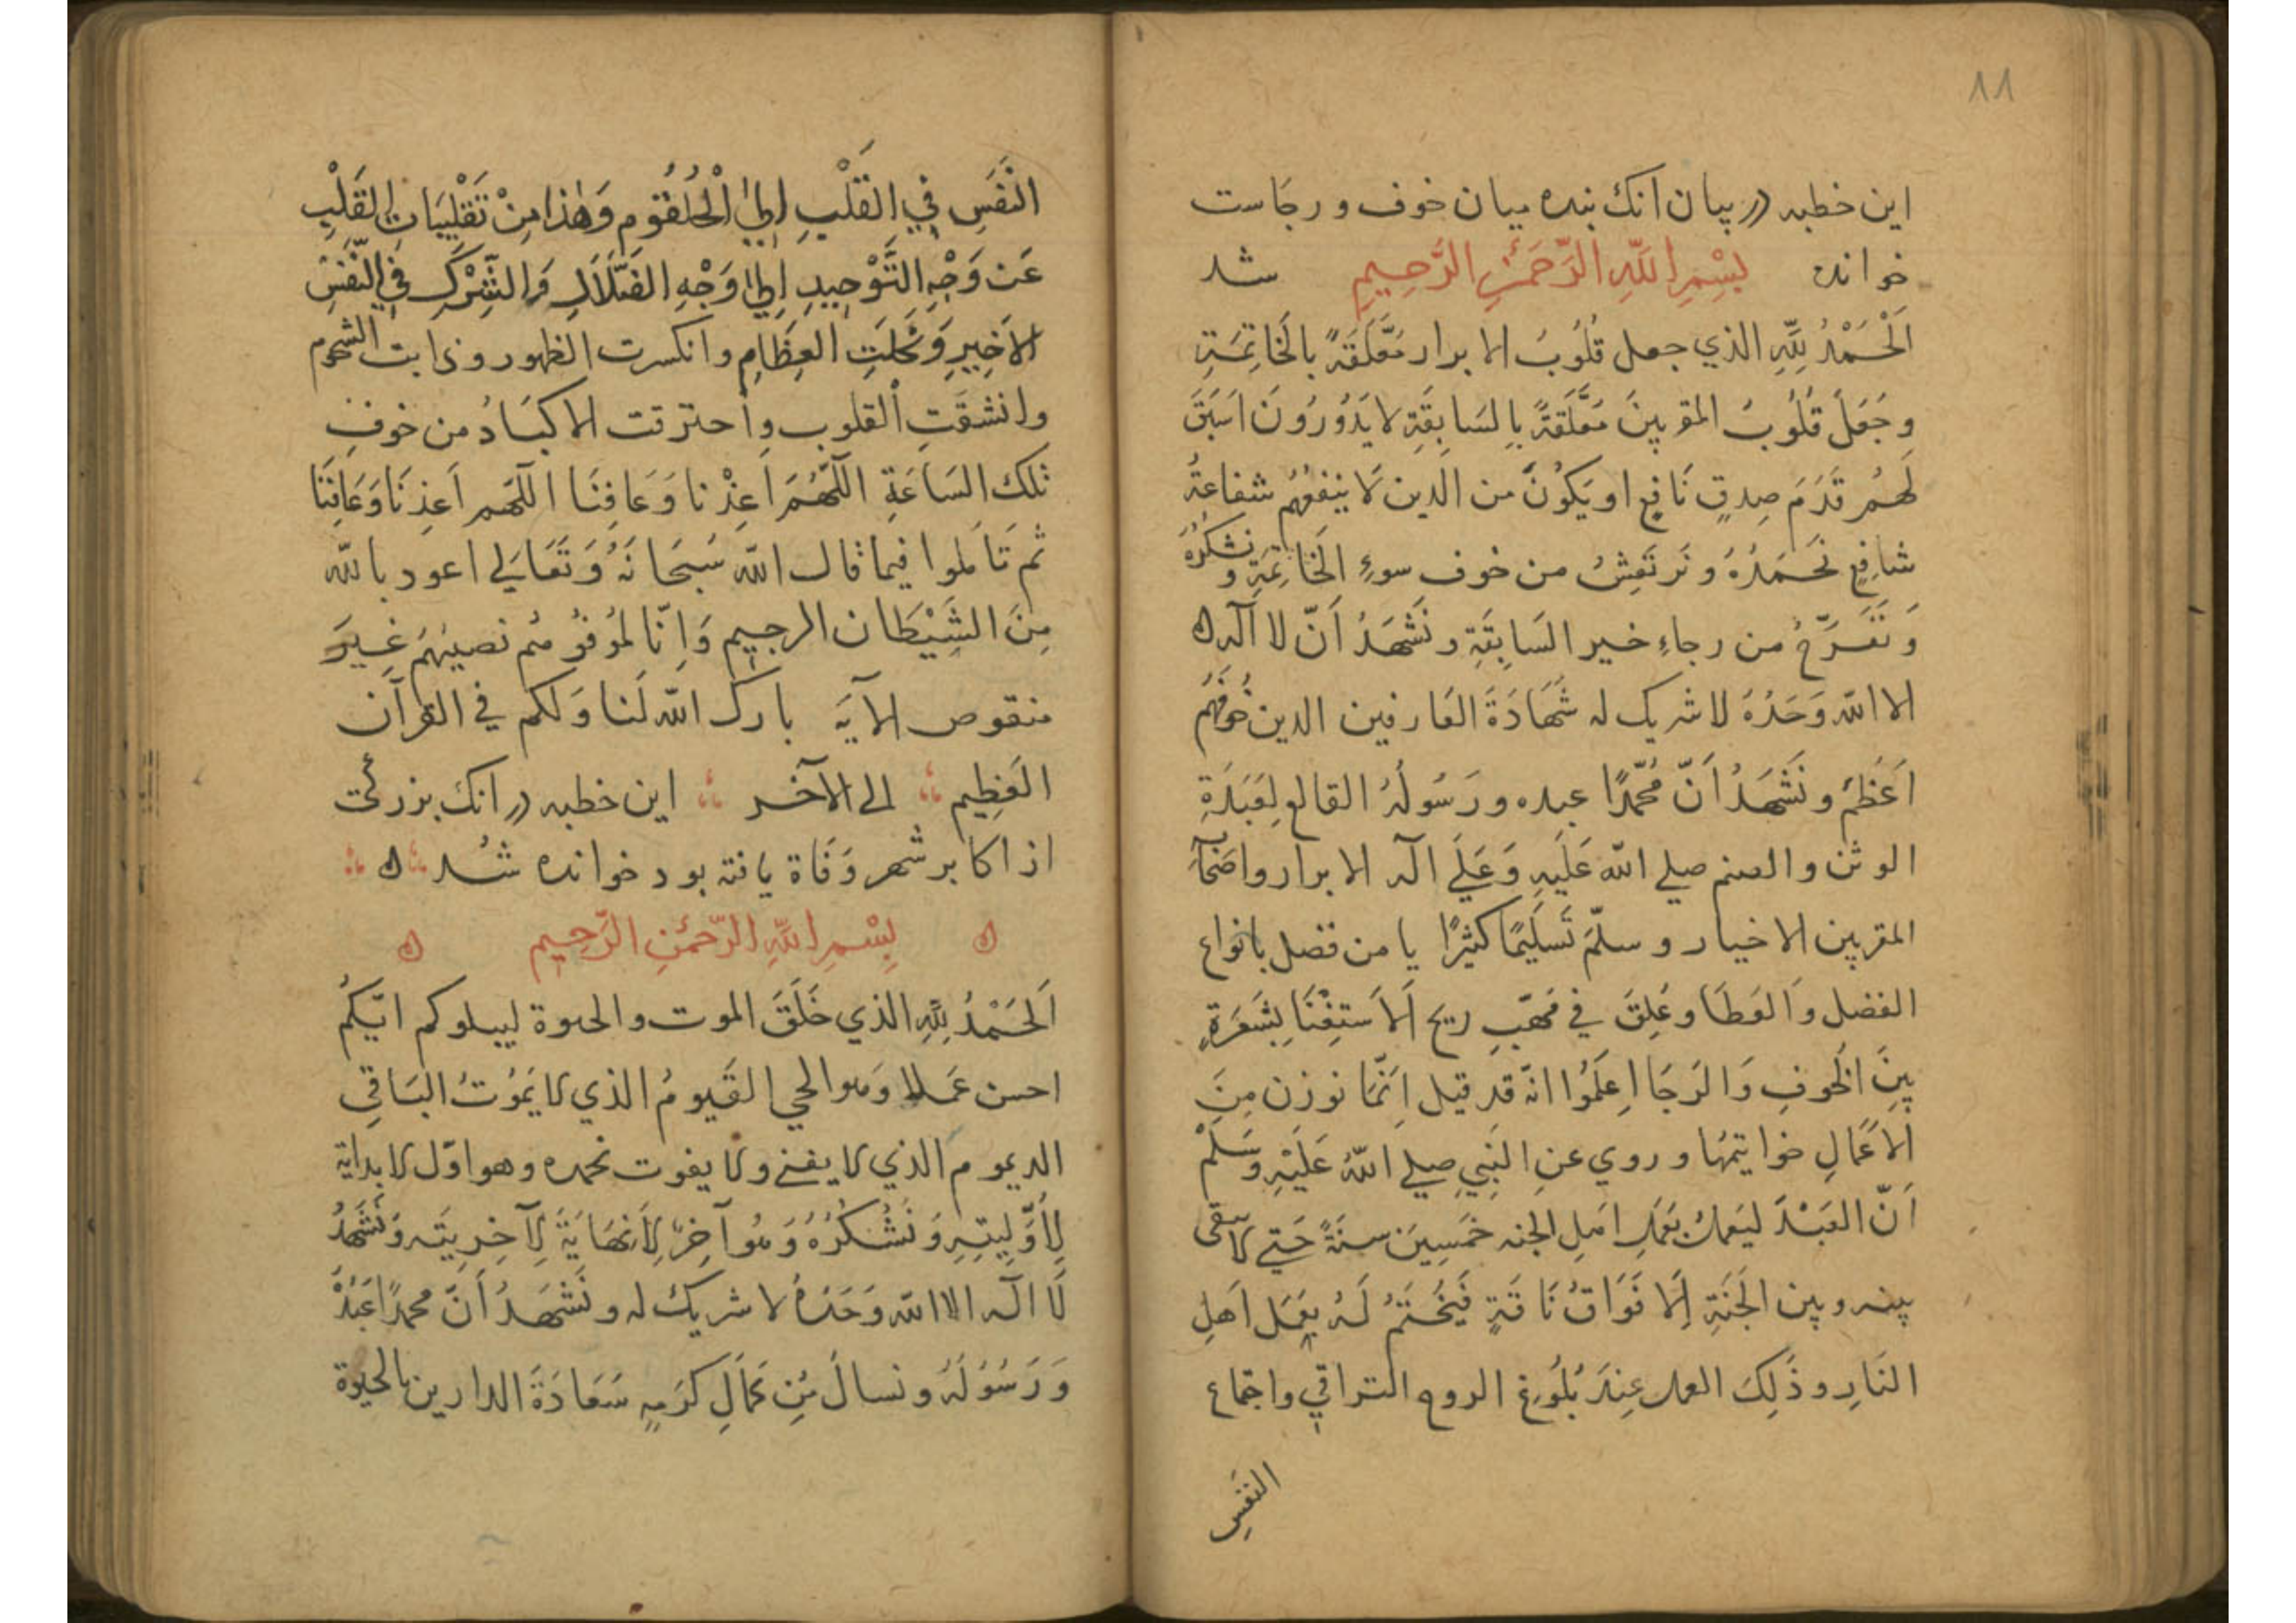 ١١
این خطبه در بیان انک بنده میان خوف و رجاست
خوانده بِسْمِ اللَّهِ الرَّحْمَٰنِ الرَّحِيمِ شد
اَلْحَمْدُ لِلَّهِ الذي جعل قُلُوبُ الابرار مُعَلَّقَةً بالخَاتِمَةِ
وجَعَلَ قُلُوبُ المقربينَ مُعَلَّقةً بِالسَابِقَةِ لا يَدُورُونَ اَسَبَقَ
لَهُمْ قَدَمَ صِدقٍ نَافِعٍ او يَكُونَ من الذين لَا ينفعهُم شفاعةُ
شافِعٍ نَحمَدُهُ وَنَرتَعِشُ من خوف سوءِ الخَاتِمَةِ ونشكُرُهُ
وَنَفَرّحُ من رجاءِ خير السَابِقَةِ ونَشهَدُ اَنّ لا آله
الا الله وَحَدُهُ لا شريك له شَهَادَةَ العَارفين الذين خوفَهُم
اَعَظم ونَشَهدُ اَنّ مُحمّدًا عبده ورَسُولُهُ القالع لِعَبَدَةِ
الوثن والصنم صلي الله عَلَيهِ وَعَلَي اله الابرار واصحَابه
المقربين الاخيار وسلّمَ تَسلِيمًا كثيرًا يا من فضل بانواع
الفضل وَالعَطَا وعَلِقَ في مَهَبّ ريح اَلاَستِغنَا بِشَعَرَةٍ
بينَ الخوفِ وَالرَجَا اِعلَمُوا انّه قد قيل اِنّمَا توزن مِنَ
الاَعمَالِ خواتيمُها وروي عنِ النَبِي صلي اللهُ عَلَيْهِ وَسَلّمْ
اَنّ العَبَدَ ليَعمَلُ بِعَمَلِ اهلِ الجنه خمَسِينَ سنةً حَتي لا يبقى
بينه وبين الجَنَةِ اِلَا فَوَاقُ نَاقَةٍ فَيُختَمُ لَهُ بِعَمَلِ اَهلِ
النَارِ وذَلِكَ العمل عِندَ بُلُوغِ الروح التراقي واجتماع
النفَسِ
النَفَسِ فِي القَلْبِ اِلَى الْحُلْقُومِ وَهٰذا مِنْ تَقْلِيبَاتِ القَلْبِ
عَن وَجْهِ التَّوْحِيدِ اِلَى وَجْهِ الضَّلَالِ وَالشِرْكِ فِي النَّفَسِ
الاَخِيرِ وَنَحَلَتِ العِظَامِ وانكسرت الظهور وذابت الشحوم
وانشقَتِ القلوب واحترقت الاكبَادُ من خوفِ
تلك السَاعَةِ اللّهُمَ اَعِذْنا وَعَافِنَا اللّهم اَعِذنَا وَعَافِنَا
ثم تَامَلوا فيما قال الله سُبحَانَهُ وَتَعَالي اعوذ بالله
مِنَ الشَيْطَان الرجيم وَاِنّا لموُفوُهُم نصيبهُم غَيرَ
منقوص الآيَه بارك الله لَنا وَلكم في القرآن
العَظِيم الى الآخر این خطبه در انک بزرکی
از اکابر شهر وَفَاة یافته بود خوانده شُد
بِسْمِ اللَّهِ الرَّحْمٰنِ الرَّحِيمِ
اَلحَمْدُ لِلَّهِ الذي خَلَقَ الموت والحيوة ليبلوكم ايّكمُ
احسن عَملا وَهوا الحي القَيومُ الذي لا يَمُوتُ البَاقي
الديموم الذي لا يفني ولا يفوت نحمده وهو اوّل لا بداية
لِأَوَّلِيتِهِ وَنَشُكُرُهُ وَهُوا آخِرٌ لَا نِهَايَةَ لِآخِرِيَتِه وَنَشَهَدُ
لَا اله الا الله وَحَدُهُ لا شريك له ونَشهَدُ اَنّ محمدًا عَبدُهُ
وَرَسُولُهُ ونسالُ مِن كَمَالِ كرَمِهِ سَعَادَةَ الدارين بالحيوة